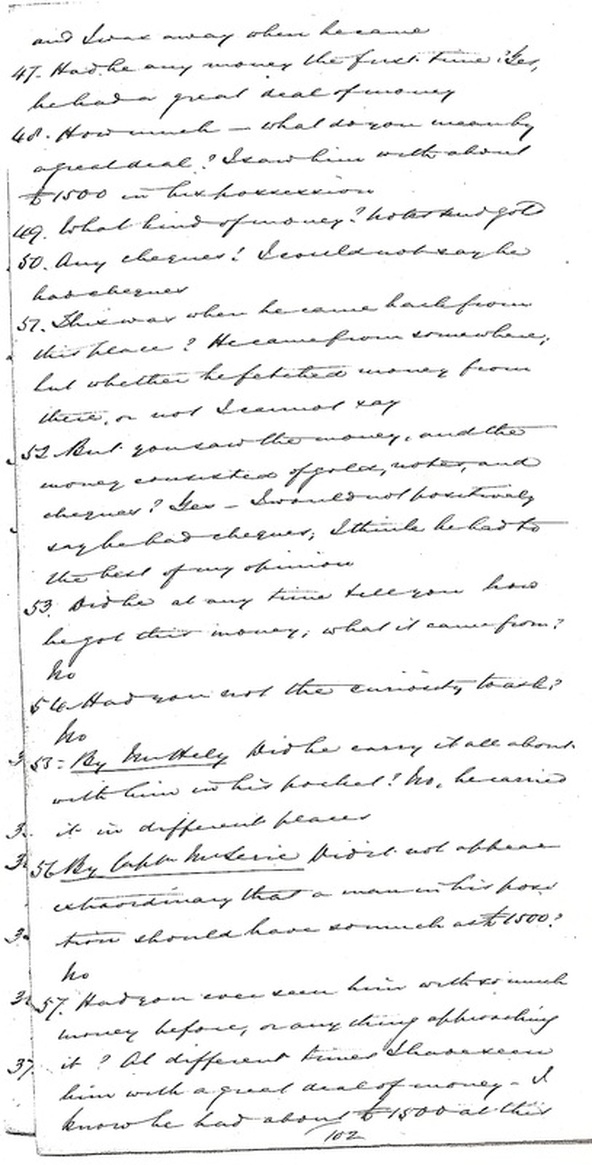 and I was away when he came
47. Had he any money the first time? Yes,
he had a great deal of money
48. How much — what do you mean by
a great deal? I saw him with about
£1500 in his possession
49. What kind of money? Notes and gold
50. Any cheques? I could not say he
had cheques
51. This was when he came back from
this place? He came from somewhere,
but whether he fetched money from
there, or not I cannot say
52 But you saw the money, and the
money consisted of gold, notes, and
cheques? Yes — I would not positively
say he had cheques; I think he had to
the best of my opinion
53. Did he at any time tell you how
he got this money; what it came from?
No
54. Had you not the curiosity to ask?
No
55- By Mr Hely Did he carry it all about
with him in his pocket? No, he carried
it in different places
56 By Captn Did it not appear
extraordinary that a man in his posi
tion should have so much as £1500?
No
57. Had you ever seen him with so much
money before, or anything approaching
it? At different times I have seen
him with a great deal of money - I
know he had about £1500 at this
102
3
3.
3
3
3
37